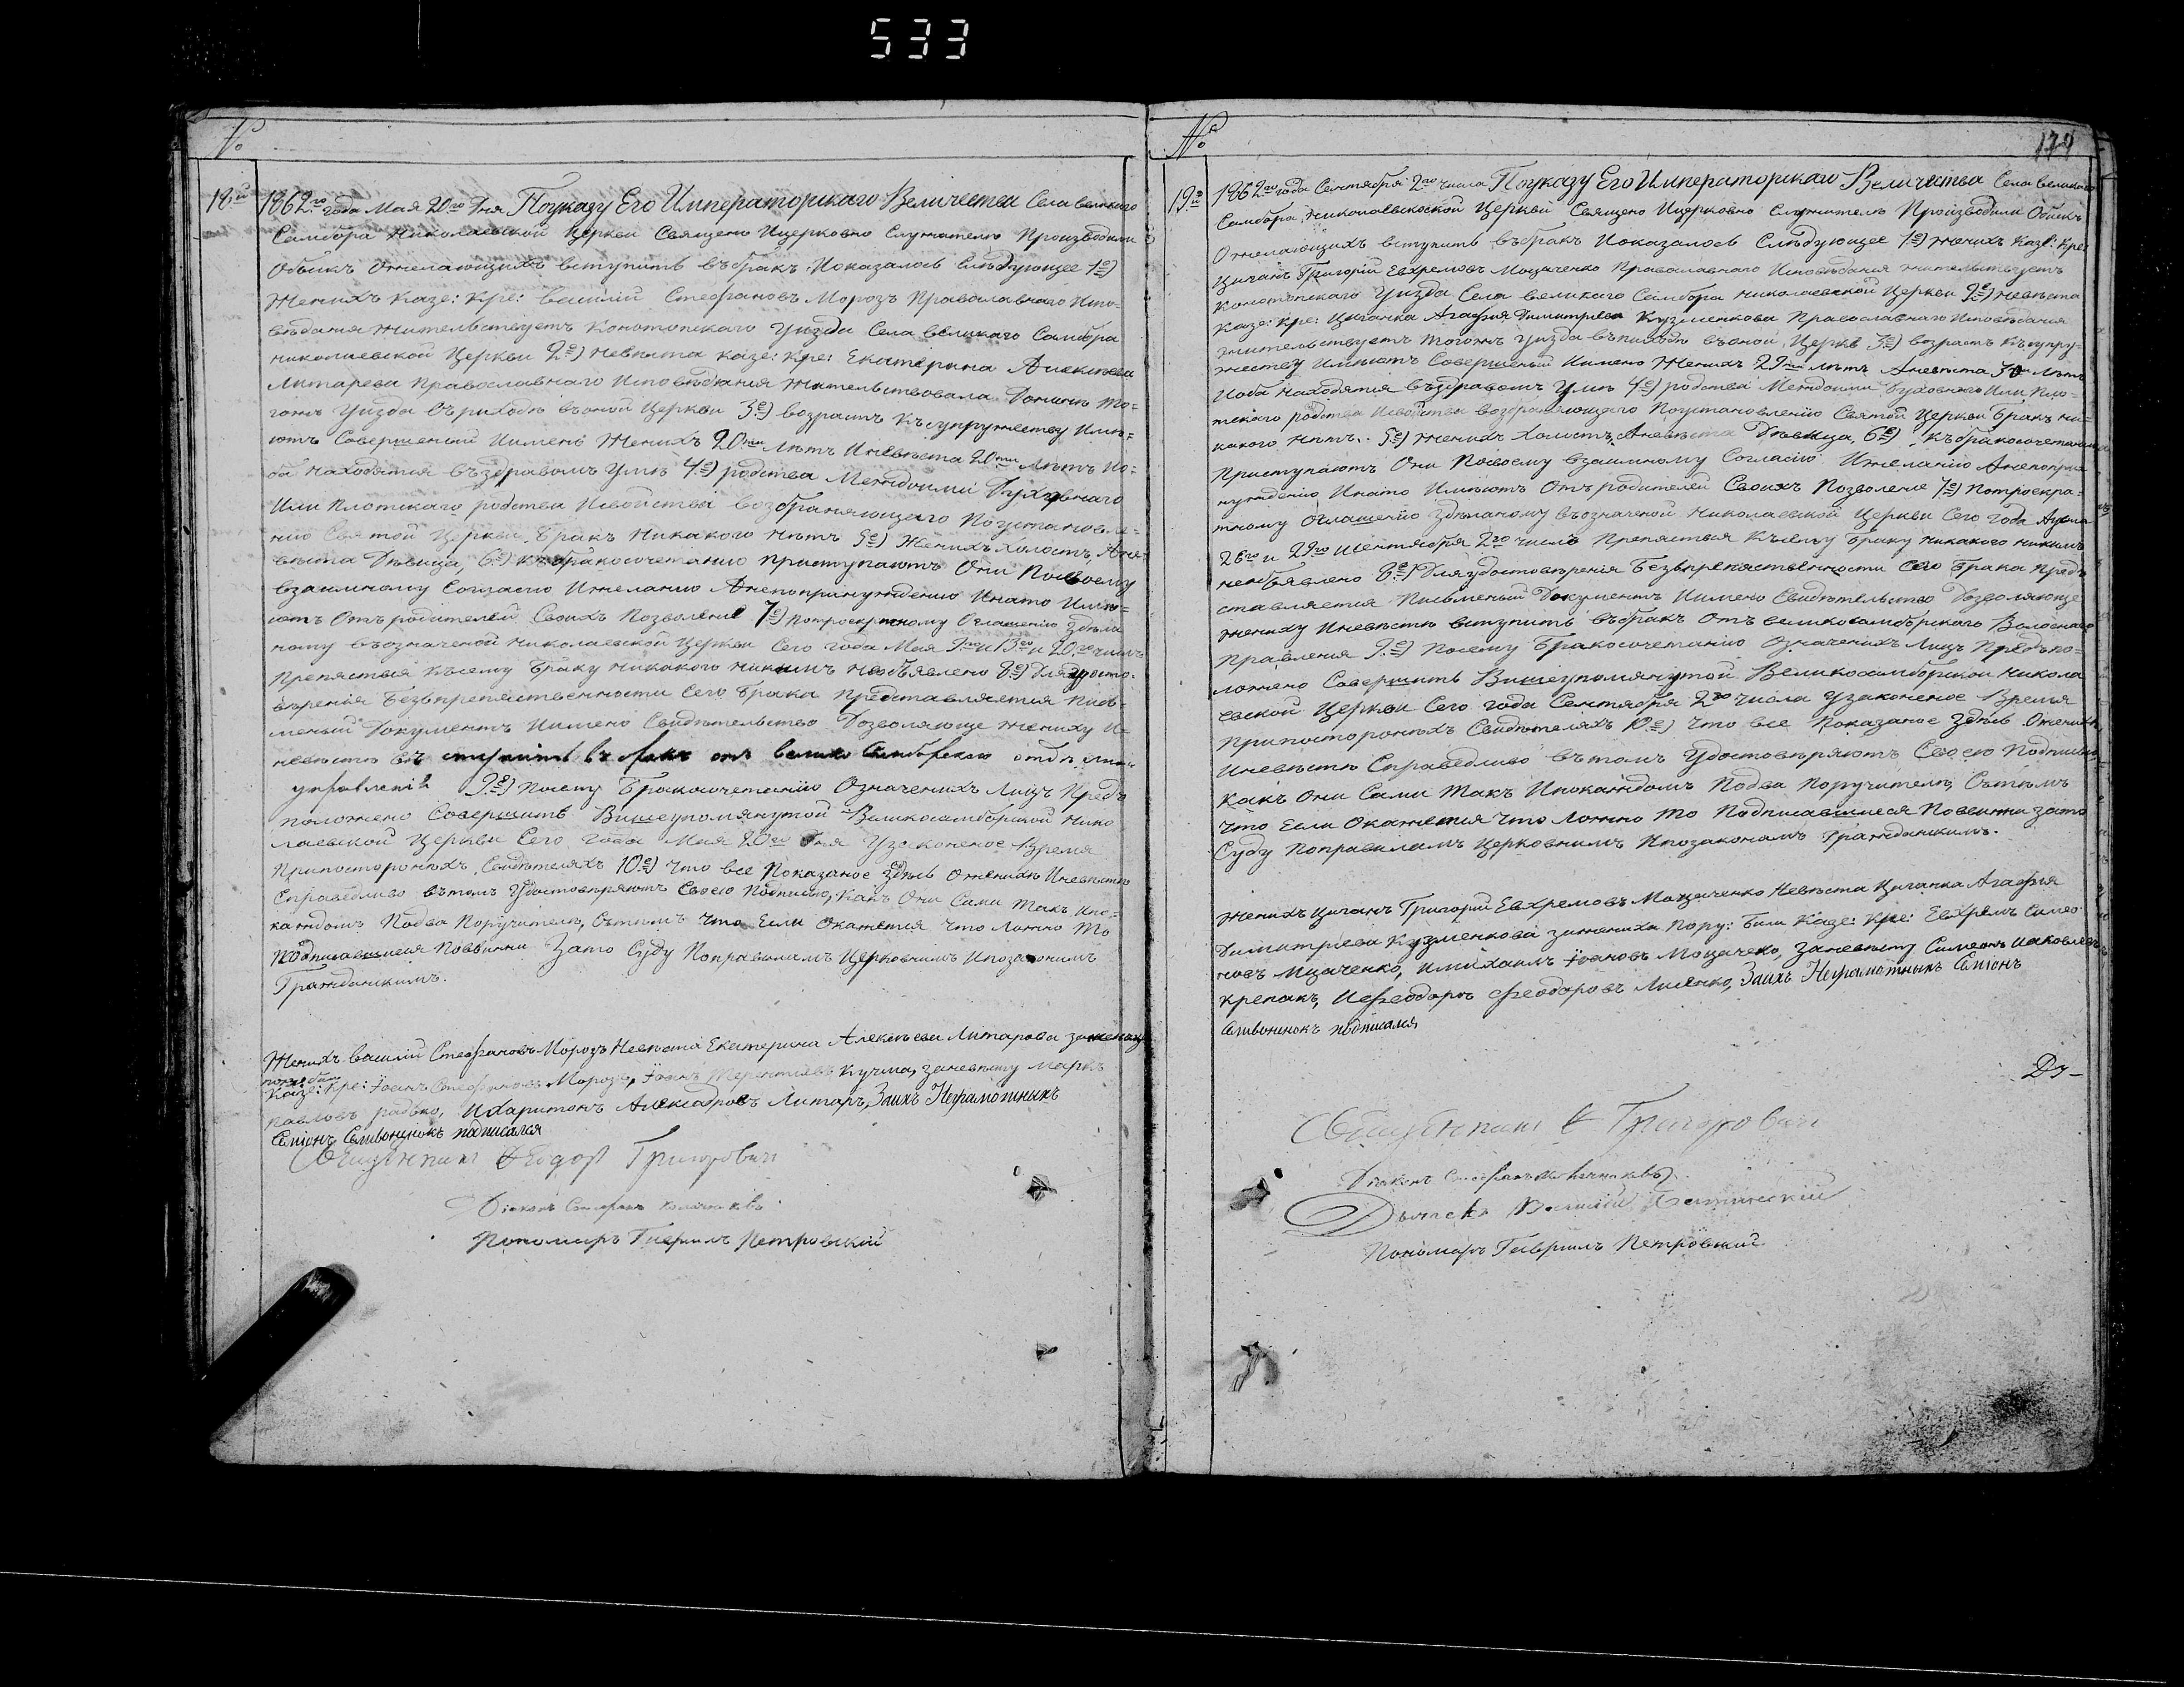 533
№
18й
1862го года Мая 20го дня Поуказу Его Императорскаго Величества Села великого
Самбора Николаевской Церкви Священо Ицерковно Служителю Производили
Обыскъ Ожелающихъ вступить въбракъ. Иоказалось Слѣдующее 1е)
Женихъ казе: кре: василий Стефановъ Морозъ Православнаго Испо-
вѣдания Жительствуетъ Конотопскаго Уизда Села великого Самбора
николаевской Церкви 2е) Невѣста казе: кре: Екатерина Алексѣева
Литарева православнаго Исповѣдания Жительствовала Донынѣ То-
гожъ Уизда въприходѣ въоной Церкви 3е) возрастъ Късупружеству Имѣ-
ютъ Совершений Иимено Женихъ 20ти лѣтъ Иневѣста 20ти лѣтъ Ио-
ба Находятся въздравомъ Умѣ 4е) родства Междоими Духовнаго
Или Плотскаго родства Исвойства возбраняющаго Поустановле-
нию Святой Церкви, Бракъ Никакого Нѣтъ 5е) Женихъ Холостъ, Ане-
вѣста Дѣвица, 6е) Къбракосочетанию приступаютъ Они Посвоему
взаимному Согласию Ижеланию Анепопринуждению Инато Имѣ-
ютъ Отъ родителей Своихъ Позволение 7е) Потроекратному Оглашению здѣла
ному въозначеной Николаевской Церкви Сего года Мая 9го и 13го и 20го числъ
Препяствия Късему Браку никакого никимъ Необъявлено 8е) Для удосто-
вѣрения Безъпрепяственности Сего Брака Представляется Пись-
меный Документъ Иимено Свидѣтельство Дозволяюще Жениху И-
невѣстѣ вступить въ бракъ отъ велико Самборскаго
управления 9е) Посему Бракосочетанию Означенихъ Лицъ Предъ
положено Совершить Вишеупомянутой Великосамборской Нико
лаевской Церкви Сего года Мая 20го дня Узаконеное Время
Припостороннхъ Свидѣтеляхъ 10е) Что все Показаное здѣсь Оженихѣ Иневѣстѣ
Справедливо вътомъ Удостовѣряютъ Своею Подписью, Какъ Они Сами Такъ Ипо-
каждомъ Подва Поручителю, Сътимъ Что Если Окажется Что Ложно То
Подписавшиеся Повинни Зато Суду Поправиламъ Церковнимъ Ипозаконамъ
Гражданскимъ.
Женихъ василий Стефановъ Морозъ Невѣста Екатерина Алексѣева Литарова зажениха
пору: били
Казе: кре: Іоанъ Стефановъ Морозъ, Іоанъ Терентиевъ Кучма, заневѣсту Маркъ
Павловъ радько, Ихаритонъ Александровъ Литаръ, Заихъ Неграмотныхъ
Семіонъ Сливонцюкъ подписался
Священникъ Феодоръ Григоровичъ
Діаконъ Стефанъ
Пономаръ Гавриилъ Петровский
№
179
19й
1862го года Сентября 2го числа Поуказу Его Императорскаго Величества Села великого
Самбора Николаевской Церкви Священо Ицерковно Служителю Производили Обискъ
Ожелающихъ вступить въбракъ Иоказалось Слѣдующее 1е) Женихъ Казе: кре:
Циганъ Григорий Евхремовъ Моцаченко Православнаго Исповѣдания Жительствуетъ
Конотопскаго Уизда Села великого Самбора Николаевской Церкви 2е) Невѣста
Казе: кре: Циганка Агафия Димитриева Кузменкова Православнаго Исповѣдания
Жительствуетъ Тогожъ Уизда въприходѣ въоной Церкви 3е) возрастъ Късупру-
жеству Имѣютъ Совершений Иимено Женихъ 29ти лѣтъ Аневѣста 30 лѣтъ
Иоба находятся въздравомъ Умѣ 4е) родства Междоими Духовнаго Или Пло-
тскаго родства Исвойства возбраняющаго Поустановлению Святой Церкви Бракъ ни-
какого нѣтъ. 5е) Женихъ Холостъ, Аневѣста Дѣвица, 6е) Къбракосочетанию
Приступаютъ Они Посвоему взаимному Согласию Ижеланию Анепоприн
нуждению Инато Имѣютъ Отъ родителей Своихъ Позволение 7е) Потроекра-
тному Оглашению здѣланому въозначеной Николаевской Церкви Сего года Ауста
26го и 29го Исентября 2го число Препяствия Късему Браку никакого никимъ
необъявлено 8е) Для удостовѣрения Безъпрепяственности Сего Брака Пред
ставляется Письменый Документъ Иимено Свидѣтельство Дозволяюще
жениху Иневѣстѣ вступить въбракъ отъ великосамборскаго Волоснаго
Правления 9е) Посему Бракосочетанию Означенихъ Лицъ Предъпо-
ложено Совершить Вишеупомянутой Великосамборской Никола
евской Церкви Сего года Сентября 2го числа Узаконеное Время
Припостороннхъ Свидѣтеляхъ 10е) Что все Показаное здѣсь Оженихѣ
Иневѣстѣ Справедливо вътомъ Удостовѣряютъ Своею Подписью
Какъ Они Сами Такъ Ипокаждомъ Подва Поручителю, Сътимъ
Что Если Окажется Что Ложно То Подписавшиеся Повинни зато
Суду Поправиламъ Церковнимъ Ипозаконамъ Гражданскимъ.
Женихъ Циганъ Григорий Евхремовъ Моцаченко Невѣста Циганка Агафия
Димитриева Кузменкова зажениха Пору: Били Казе: кре: Евхремъ Симео
новъ Моцаченко, Имихаилъ Іоановъ Моцаченко, заневѣсту Симеонъ Иаковлевъ
крепакъ, Ифеодоръ Феодоровъ Лисенко, Заихъ Неграмотныхъ Семіонъ
Сливонцюкъ подписался
Ду-
Священникъ Ф Григоровичъ
Діаконъ Стефанъ
Дьячекъ Василий
Пономаръ Гавриилъ Петровский